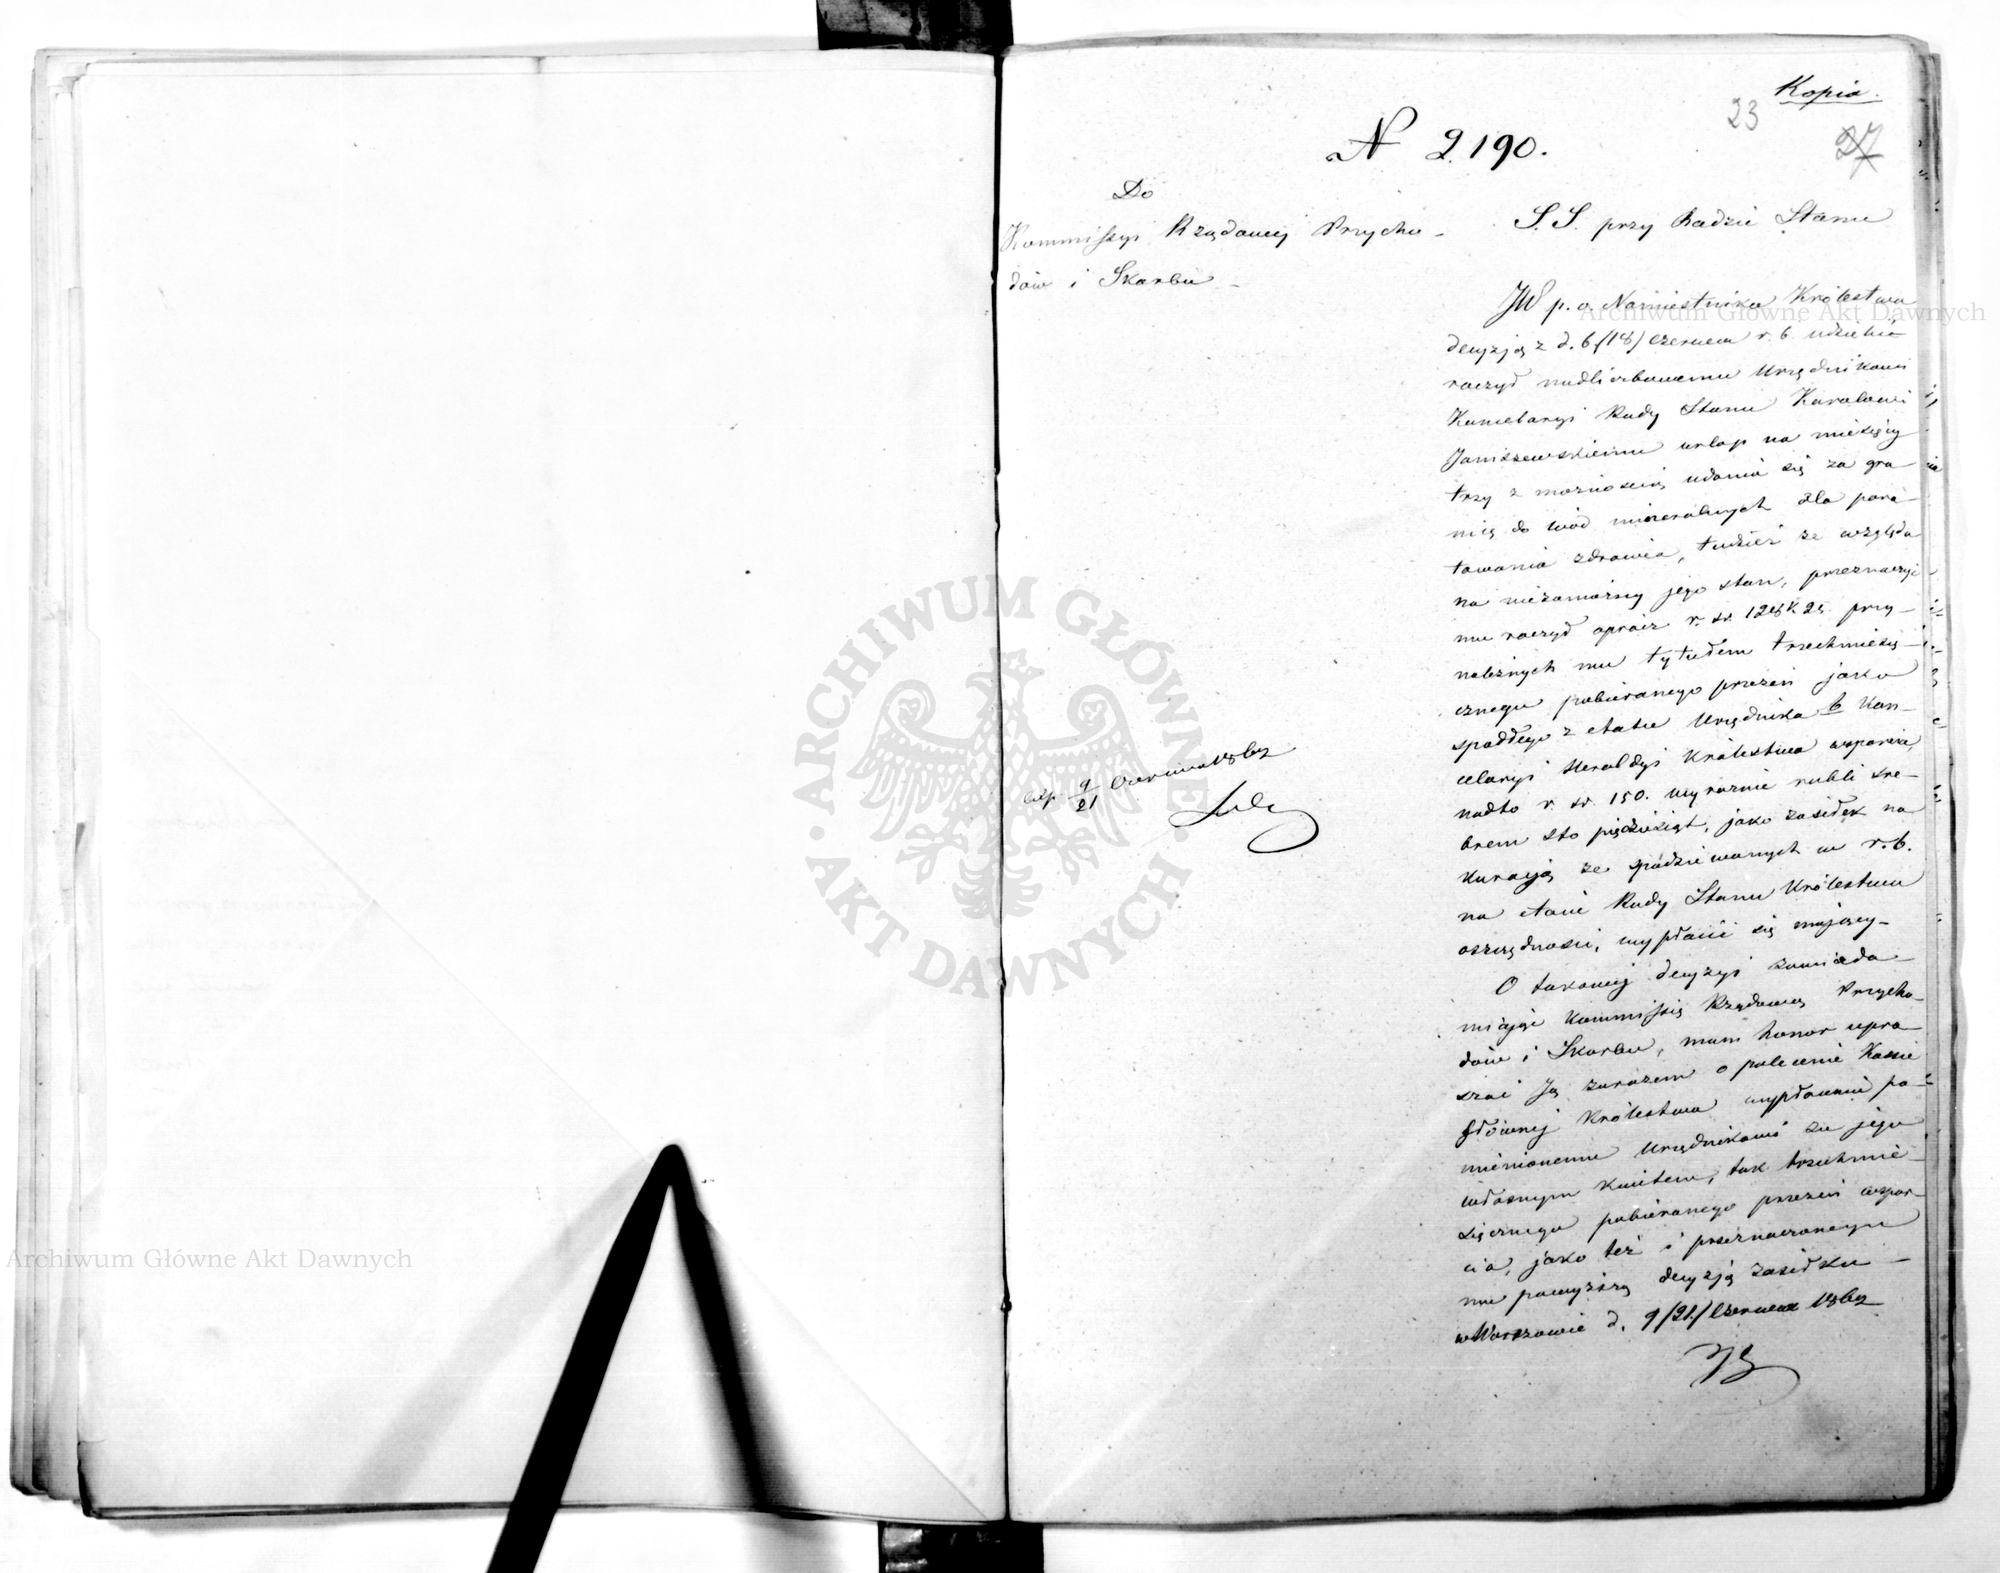 Kopia.
23
27
N 2190.
Do
Kommissyi Rządowej Przycho-
dów i Skarbu -
S. S. przy Radzie Stanu
JW p. o. Namiestnika Królestwa
decyzją z d. 6/18/ Czerwca r. b. udzielić
raczył nadliczbowemu Urzędnikowi
Kancelaryi Rady Stanu Karolowi
Janiszewskiemu urlop na miesięcy
trzy z możnością udania się za gra-
nicę do wód mineralnych dla pora-
towania zdrowia, tudzież ze względu
na niezamożny jego stan, przeznaczyć
mu raczył oprócz r. sr. 128 k 25. przy-
należnych mu tytułem trzechmiesię-
cznego pobieranego przezeń jako
spadłego z etatu Urzędnika b Kan-
celaryi Heroldyi Królestwa wsparcia,
nadto r. sr. 150. wyraźnie rubli sre-
brem sto pięćdziesiąt, jako zasiłek na
kuracją ze spodziewanych w r. b.
na etacie Rady Stanu Królestwa
oszczędności, wypłacić się mający-
O takowej decyzyi zawiada-
miając Kommissię Rządową Przycho-
dów i Skarbu, mam honor upra-
szać Ją zarazem o polecenie Kassie
Głównej Królestwa wypłacenia po-
mienionemu Urzędnikowi za jego
własnym kwitem, tak trzechmie-
sięcznego pobieranego przezeń wspar-
cia, jako też i przeznaczonego
mu powyższą decyzją zasiłku -
w Warszawie d. 9/21/ Czerwca 1862
exp. 9/21 Czerwca 1862
Archiwum Główne Akt Dawnych
ARCHIWUM GŁÓWNE
· AKT DAWNYCH ·
Archiwum Główne Akt Dawnych